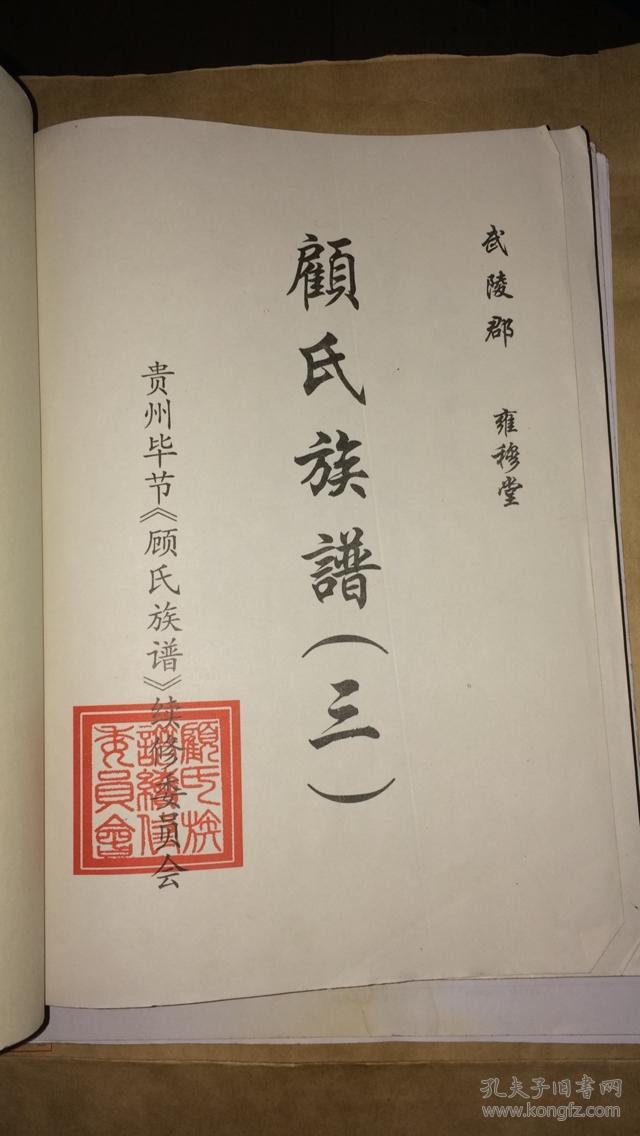 武陵郡 雍穆堂
顧氏族譜(三)
贵州毕节《顾氏族谱》续修委员会
顧氏族
譜續修
委員會
孔夫子旧书网
www.kongfz.com